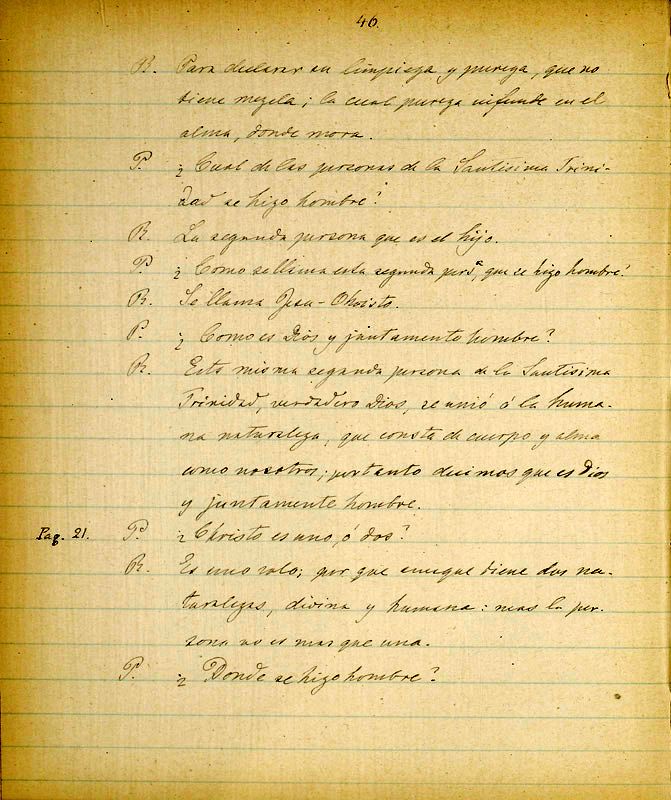 46.
R. Para declarar su limpieza y pureza, que no
tiene mezcla; la cual pureza infunde en el
alma, donde mora.
P. ¿Cual de las personas de la Santisima Trini-
dad se hizo hombre?
R. La segunda persona que es el hijo.
P. ¿Como se llama esta segunda persª, que se hizo hombre?
R. Se llama Jesu-Christo.
P. ¿Como es Dios y juntamente hombre?
R. Esta misma segunda persona de la Santisima
Trinidad, verdadero Dios, se unió á la huma-
na naturaleza, que consta de cuerpo y alma
como nosotros; por tanto decimos que es Dios
y juntamente hombre.
Pag. 21. P. ¿Christo es uno, ó dos?
R. Es uno solo; por que aunque tiene dos na-
turalezas, divina y humana: mas la per-
sona no es mas que una.
P. ¿Donde se hizo hombre?